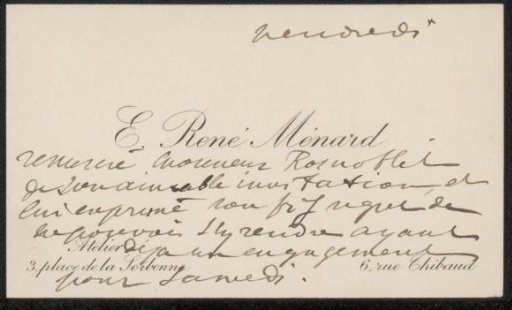 vendredi
E. René Ménard
remercie Monsieur
de son aimable invitation, et
lui exprime son vif regret de
ne pouvoir s'y rendre ayant
Atelier
déjà un engagement
3, place de la Sorbonne
6, rue Thibaud
pour Samedi.